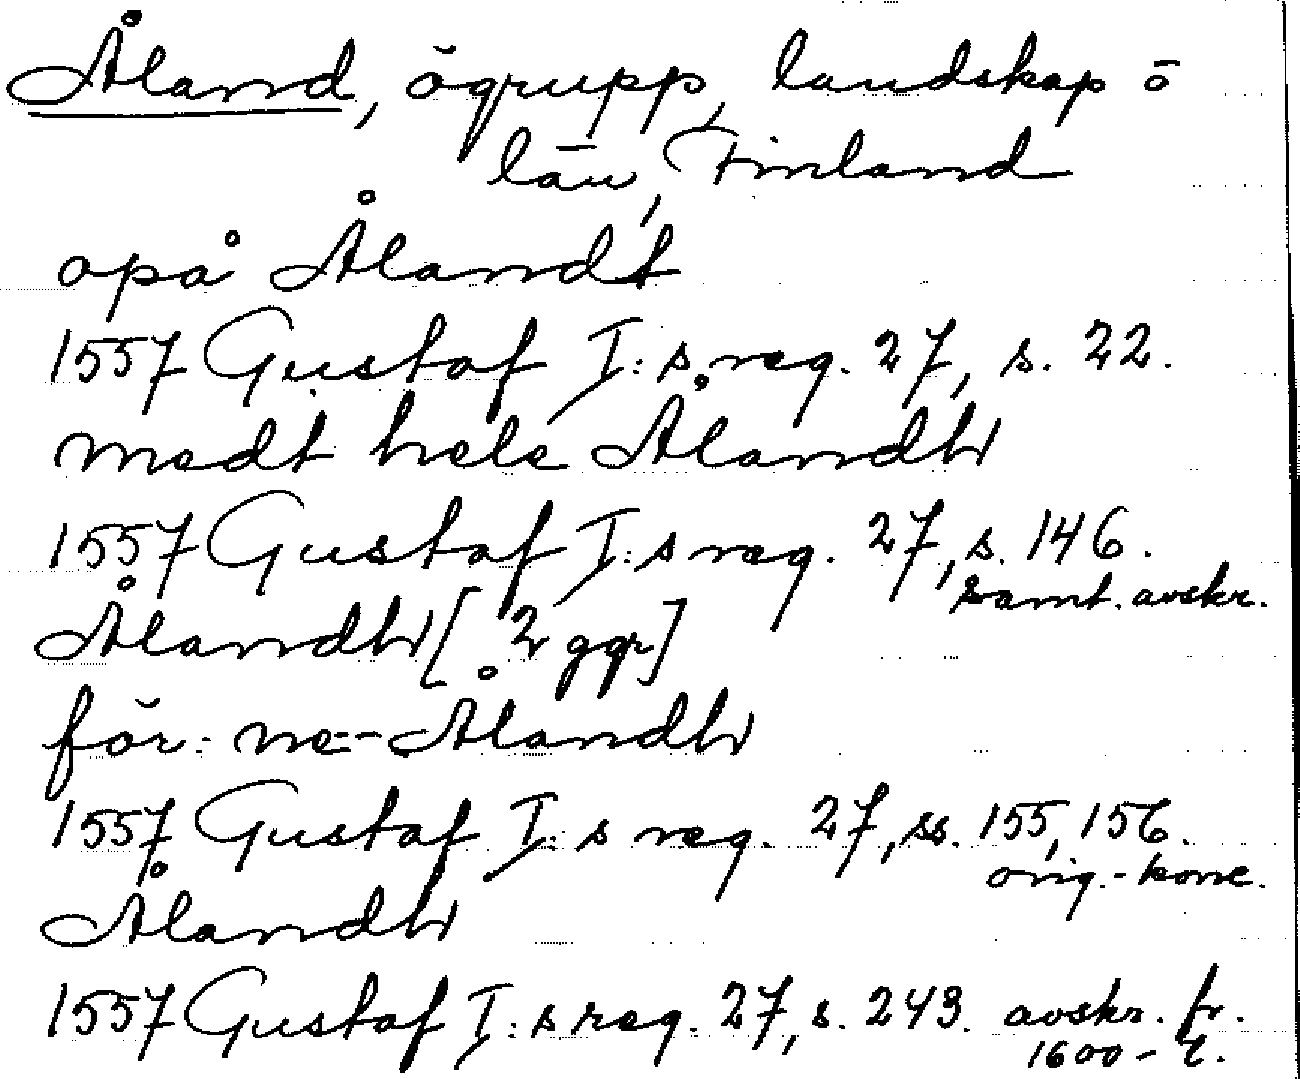 Åland, ögrupp, landskap o
län, Finland
opå Ålandt
1557 Gustaf I:s reg. 27, s. 22.
medt hele Ålandh
1557 Gustaf I:s reg. 27, s. 146.
samt. avskr.
Ålandh [2 ggr]
för: ne-Ålandh
1557 Gustaf I:s reg. 27, ss. 155, 156.
orig.-konc.
Ålandh
1557 Gustaf I:s reg. 27, s. 243. avskr. fr.
1600-t.